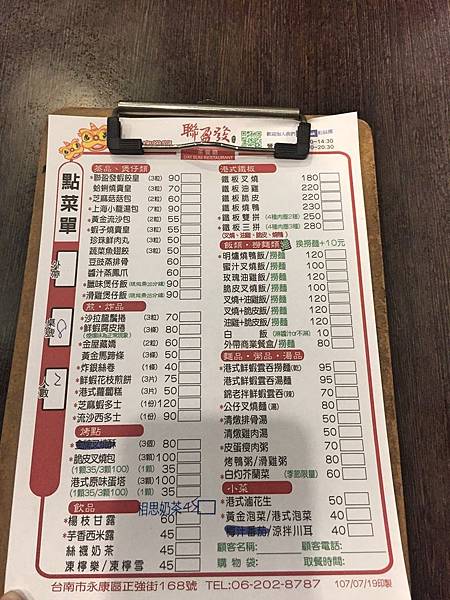 聯盈發
茶餐廳
DIM SUM RESTAURANT
點菜單
外帶
桌號 8
人數 2
茶品、煲仔類
*聯盈發蝦餃皇 (3粒) 90
蛤蜊燒賣皇 (3粒) 70
*芝麻菇菇包 (2粒) 60
*上海小籠湯包 (7粒) 90
*黃金流沙包 (2粒) 55
*蝦子燒賣皇 (3粒) 55
珍珠鮮肉丸 (3粒) 50
蔬菜魚翅餃 (3粒) 50
豆豉蒸排骨 60
醬汁蒸鳳爪 60
*臘味煲仔飯 160
*滑雞煲仔飯 160
煎、炸品
*沙拉龍鬚捲 (3粒) 70
*鮮蝦腐皮捲 (3條) 80
*金屋藏嬌 (2粒) 60
黃金馬蹄條 (3條) 50
*炸銀絲卷 (1條) 40
*鮮蝦花枝煎餅 (3片) 75
*港式蘿蔔糕 (3片) 50
*芝麻蝦多士 (1份) 120
*流沙西多士 (1份) 90
烤點
(3個) 80
*脆皮叉燒包 (1個) 35
(1顆35/3顆100)
港式原味蛋塔 (1顆) 35
(1顆35/3顆100)
飲品
相思奶茶45
*楊枝甘露 60
*芋香西米露 45
絲襪奶茶 45
凍檸樂/凍檸雪 45
港式鐵板
鐵板叉燒 180
鐵板油雞 220
鐵板脆皮 220
鐵板燒鴨 220
*鐵板雙拼 (4種肉應2種) 250
*鐵板三拼 (4種肉應3種) 280
(叉燒、油雞、脆皮、燒鴨)
飯類、撈麵類 換撈麵+10元
*明爐燒鴨飯/撈麵 120
蜜汁叉燒飯/撈麵 100
玫瑰油雞飯/撈麵 120
脆皮叉燒飯/撈麵 100
叉燒+油雞飯/撈麵 120
叉燒+脆皮飯/撈麵 120
油雞+脆皮飯/撈麵 120
白飯 (淋醬汁or不淋) 10
外帶商業餐盒/撈麵 80
麵品、粥品、湯品
*港式鮮蝦雲吞撈麵(乾) 95
*港式鮮蝦雲吞湯麵 95
錦老拌鮮蝦雲吞(辣) 70
*公仔叉燒麵(湯) 80
清燉排骨湯 50
清燉雞肉湯 50
*皮蛋瘦肉粥 50
烤鴨粥/滑雞粥 80
*白灼芥蘭菜 (季節限量) 60
小菜
*港式滷花生 50
*黃金泡菜/港式泡菜 40
涼拌川耳 40
顧客名稱: 顧客電話:
購物袋: 取餐時間:
台南市永康區正強街168號 TEL:06-202-8787 107/07/19印製